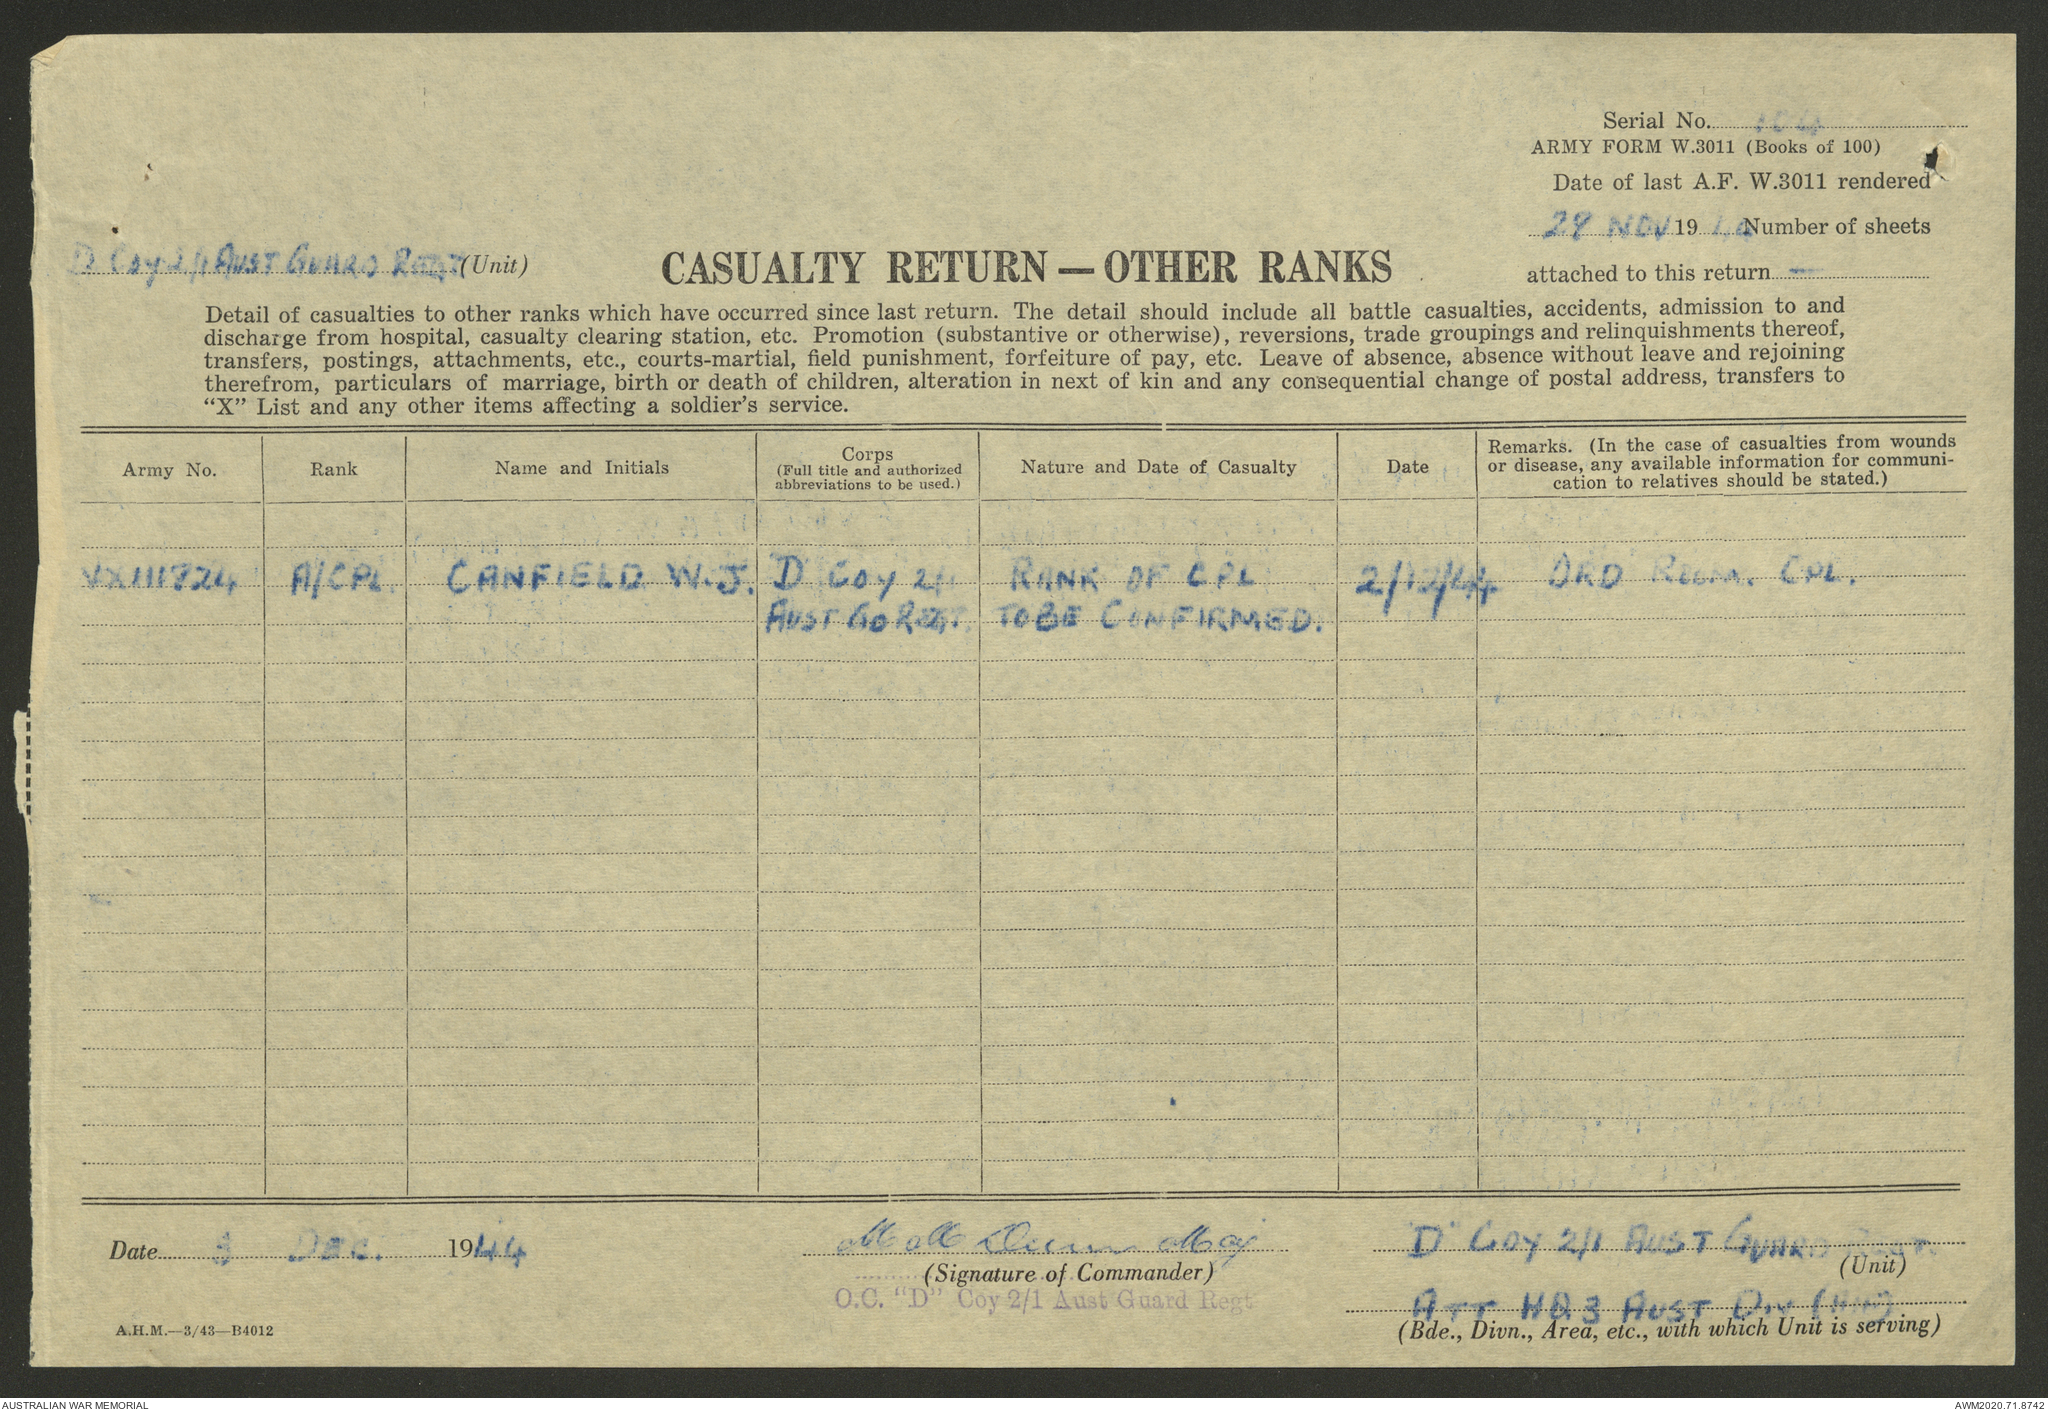 Serial No. 104
ARMY FORM W.3011 (Books of 100)
Date of last A.F. W.3011 rendered
29 NOV 19 44 Number of sheets
attached to this return —
D Coy 2/1 AUST GUARD REGT (Unit)
CASUALTY RETURN — OTHER RANKS
Detail of casualties to other ranks which have occurred since last return. The detail should include all battle casualties, accidents, admission to and
discharge from hospital, casualty clearing station, etc. Promotion (substantive or otherwise), reversions, trade groupings and relinquishments thereof,
transfers, postings, attachments, etc., courts-martial, field punishment, forfeiture of pay, etc. Leave of absence, absence without leave and rejoining
therefrom, particulars of marriage, birth or death of children, alteration in next of kin and any consequential change of postal address, transfers to
"X" List and any other items affecting a soldier's service.
Army No.
Rank
Name and Initials
Corps
(Full title and authorized
abbreviations to be used.)
Nature and Date of Casualty
Date
Remarks. (In the case of casualties from wounds
or disease, any available information for communi-
cation to relatives should be stated.)
VX111824 A/CPL CANFIELD W.J. D Coy 2/1 RANK OF CPL 2/12/44 ORD ROOM. CPL.
AUST GD REGT. TO BE CONFIRMED.
Date 3 DEC. 1944
(Signature of Commander)
O.C. "D" Coy 2/1 Aust Guard Regt
"D" COY 2/1 AUST GUARD REGT.
(Unit)
ATT HQ 3 AUST DIV
(Bde., Divn., Area, etc., with which Unit is serving)
A.H.M.—3/43—B4012
AUSTRALIAN WAR MEMORIAL
AWM2020.71.8742